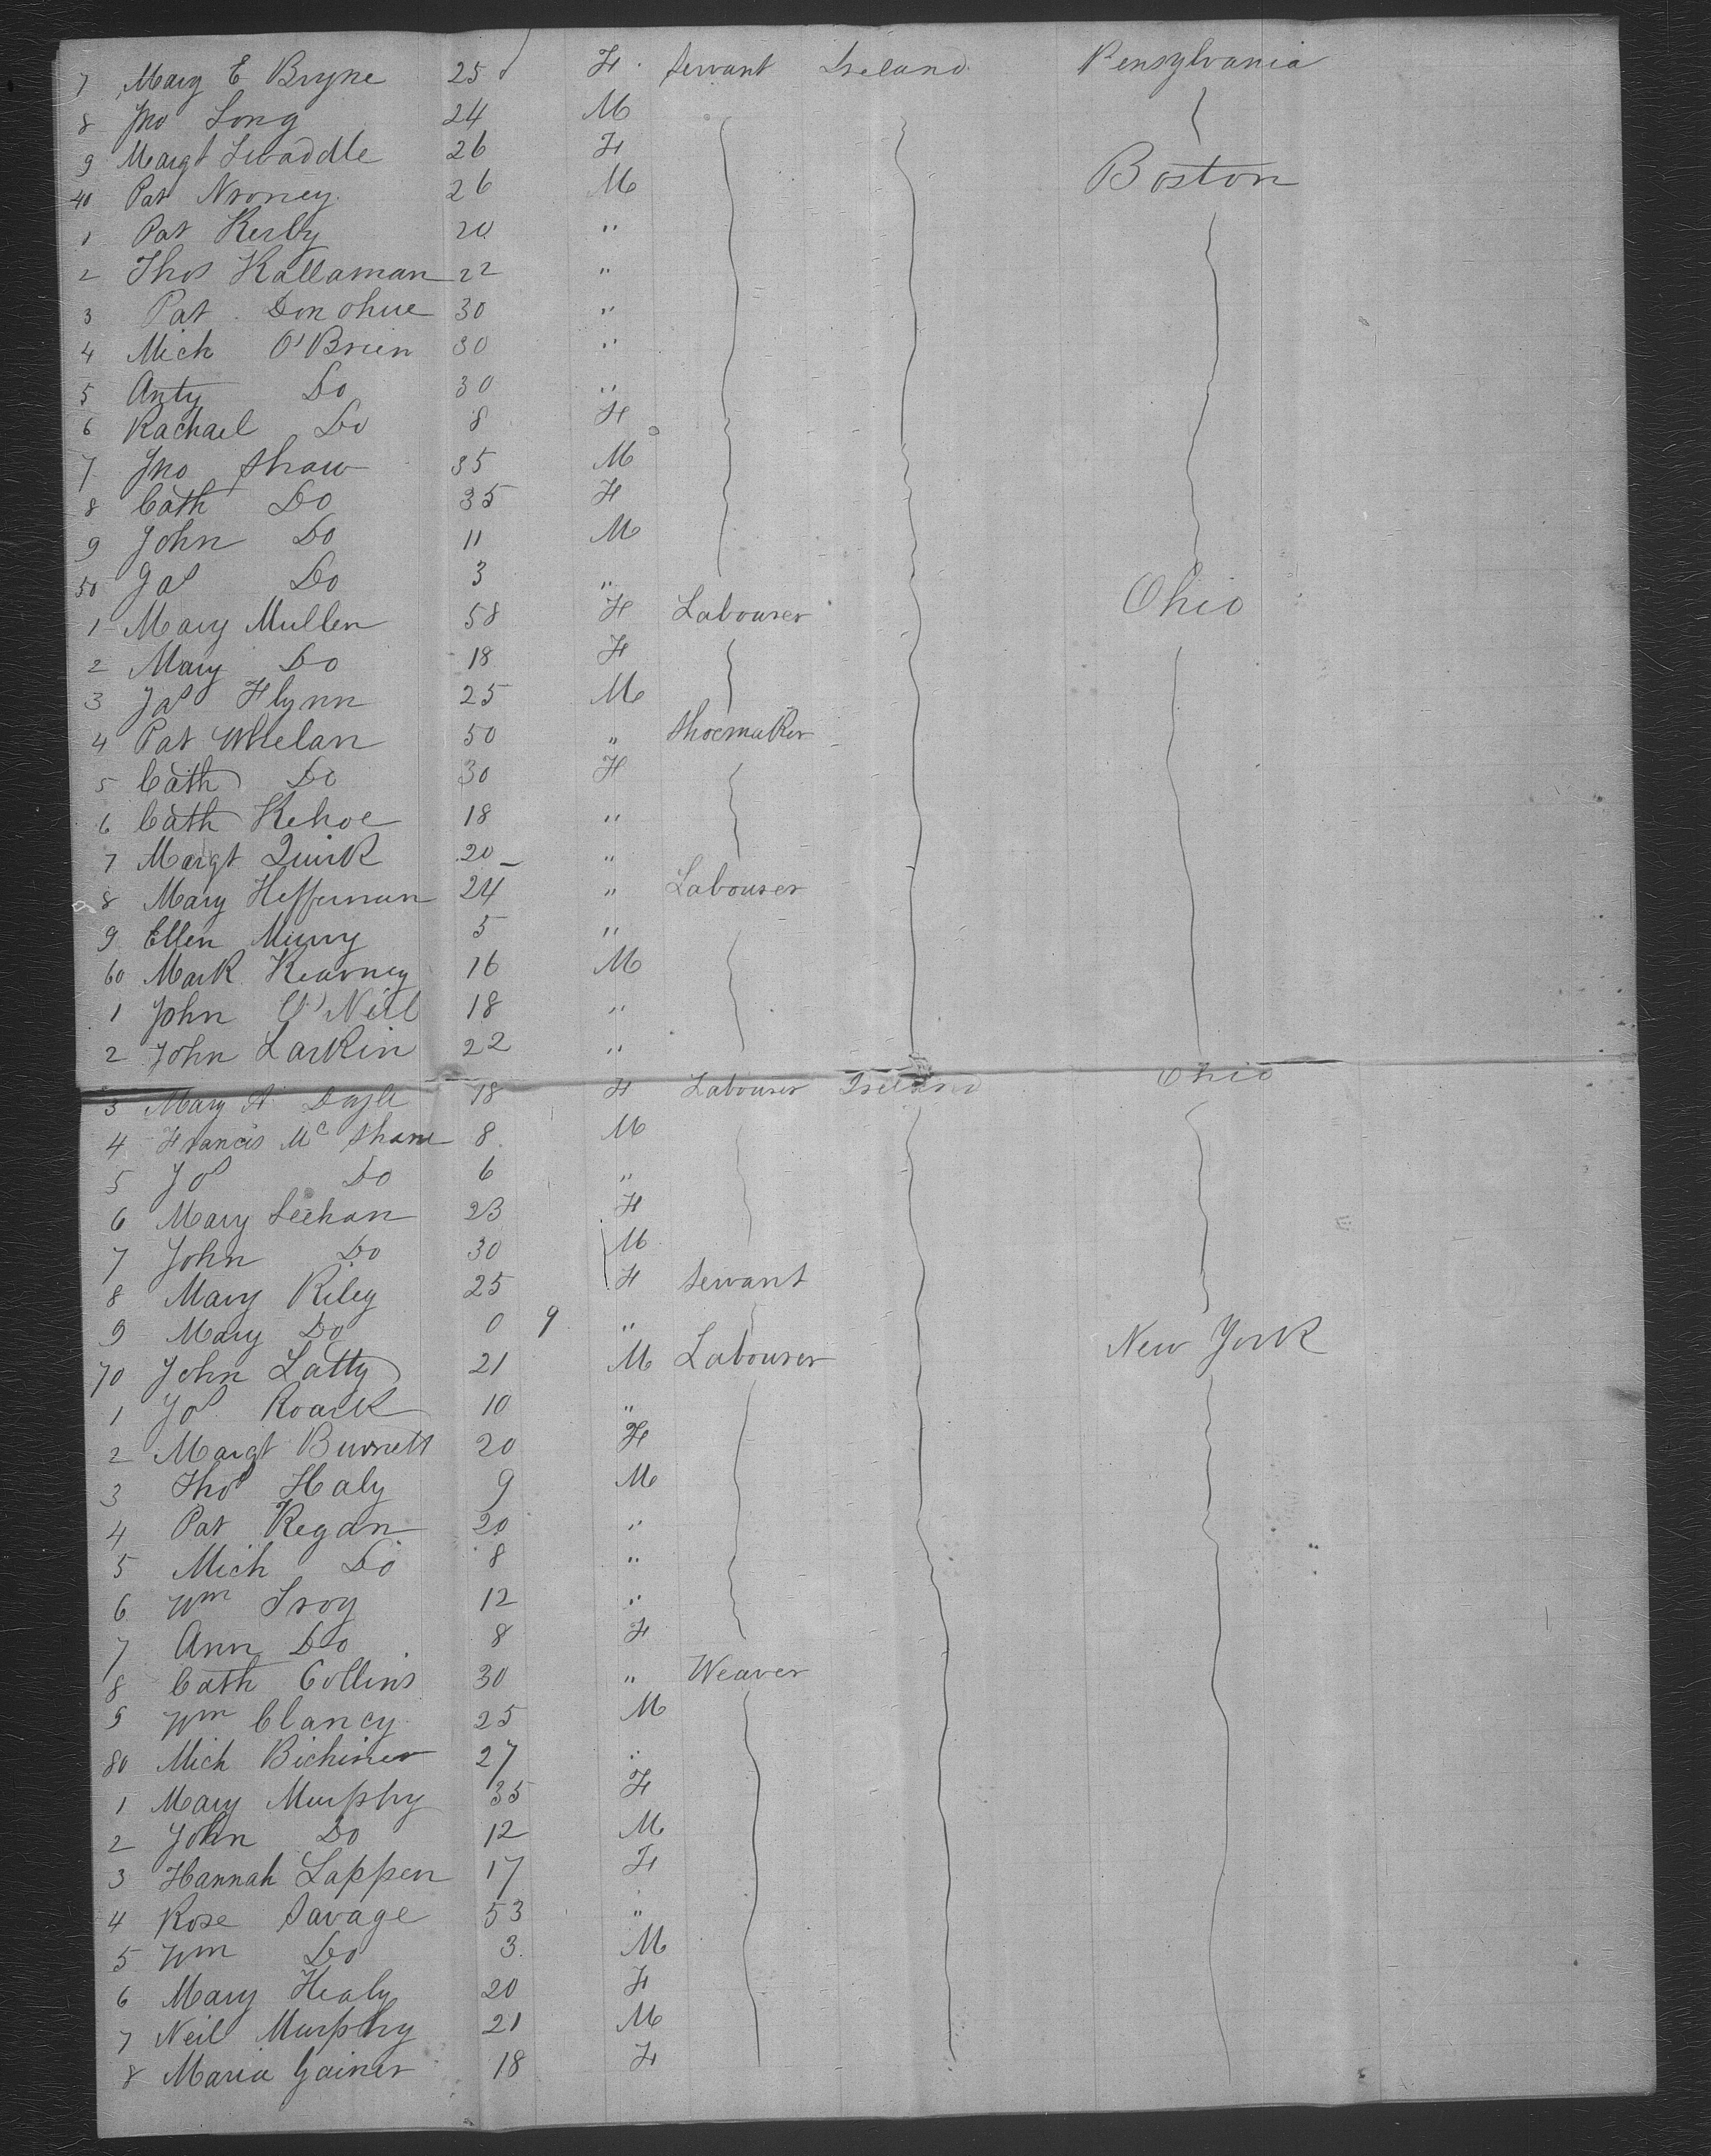 7 Mary E Bryne 25 F. Servant Ireland Pensylvania
8 Jno Long 24 M
9 Margt Swaddle 26 F
40 Pat Nroney 26 M Boston
1 Pat Kerby 20 "
2 Thos Kallaman 22 "
3 Pat Donohue 30 "
4 Mich O'Brien 30 "
5 Anty Do 30 "
6 Rachael Do 8 F
7 Jno Shaw 35 M
8 Cath Do 35 F
9 John Do 11 M
50 Jas Do 3 "
1 Mary Mullen 58 F Labourer Ohio
2 Mary Do 18 F
3 Jas Flynn 25 M
4 Pat Whelan 50 " Shoemaker
5 Cath Do 30 F
6 Cath Kehoe 18 "
7 Margt Quirk 20 "
8 Mary Heffernan 24 " Labourer
9 Ellen 5 "
60 Mark Kearney 16 M
1 John O'Neil 18 "
2 John Larkin 22 "
3 Mary A Doyle 18 F Labourer Ireland Ohio
4 Francis Mc Shane 8 M
5 Jos Do 6 "
6 Mary Leehan 23 F
7 John Do 30 M
8 Mary Riley 25 F Servant
9 Mary Do 0 9 "
70 John Latty 21 M Labourer New York
1 Jos Roark 10 "
2 Margt Burnett 20 F
3 Thos Haly 9 M
4 Pat Regan 20 "
5 Mich Do 8 "
6 Wm Troy 12 "
7 Ann Do 8 F
8 Cath Collins 30 " Weaver
9 Wm Clancy 25 M
80 Mich 27 "
1 Mary Murphy 35 F
2 John Do 12 M
3 Hannah Lappen 17 F
4 Rose Savage 53 "
5 Wm Do 3 M
6 Mary Healy 20 F
7 Neil Murphy 21 M
8 Maria Gainer 18 F